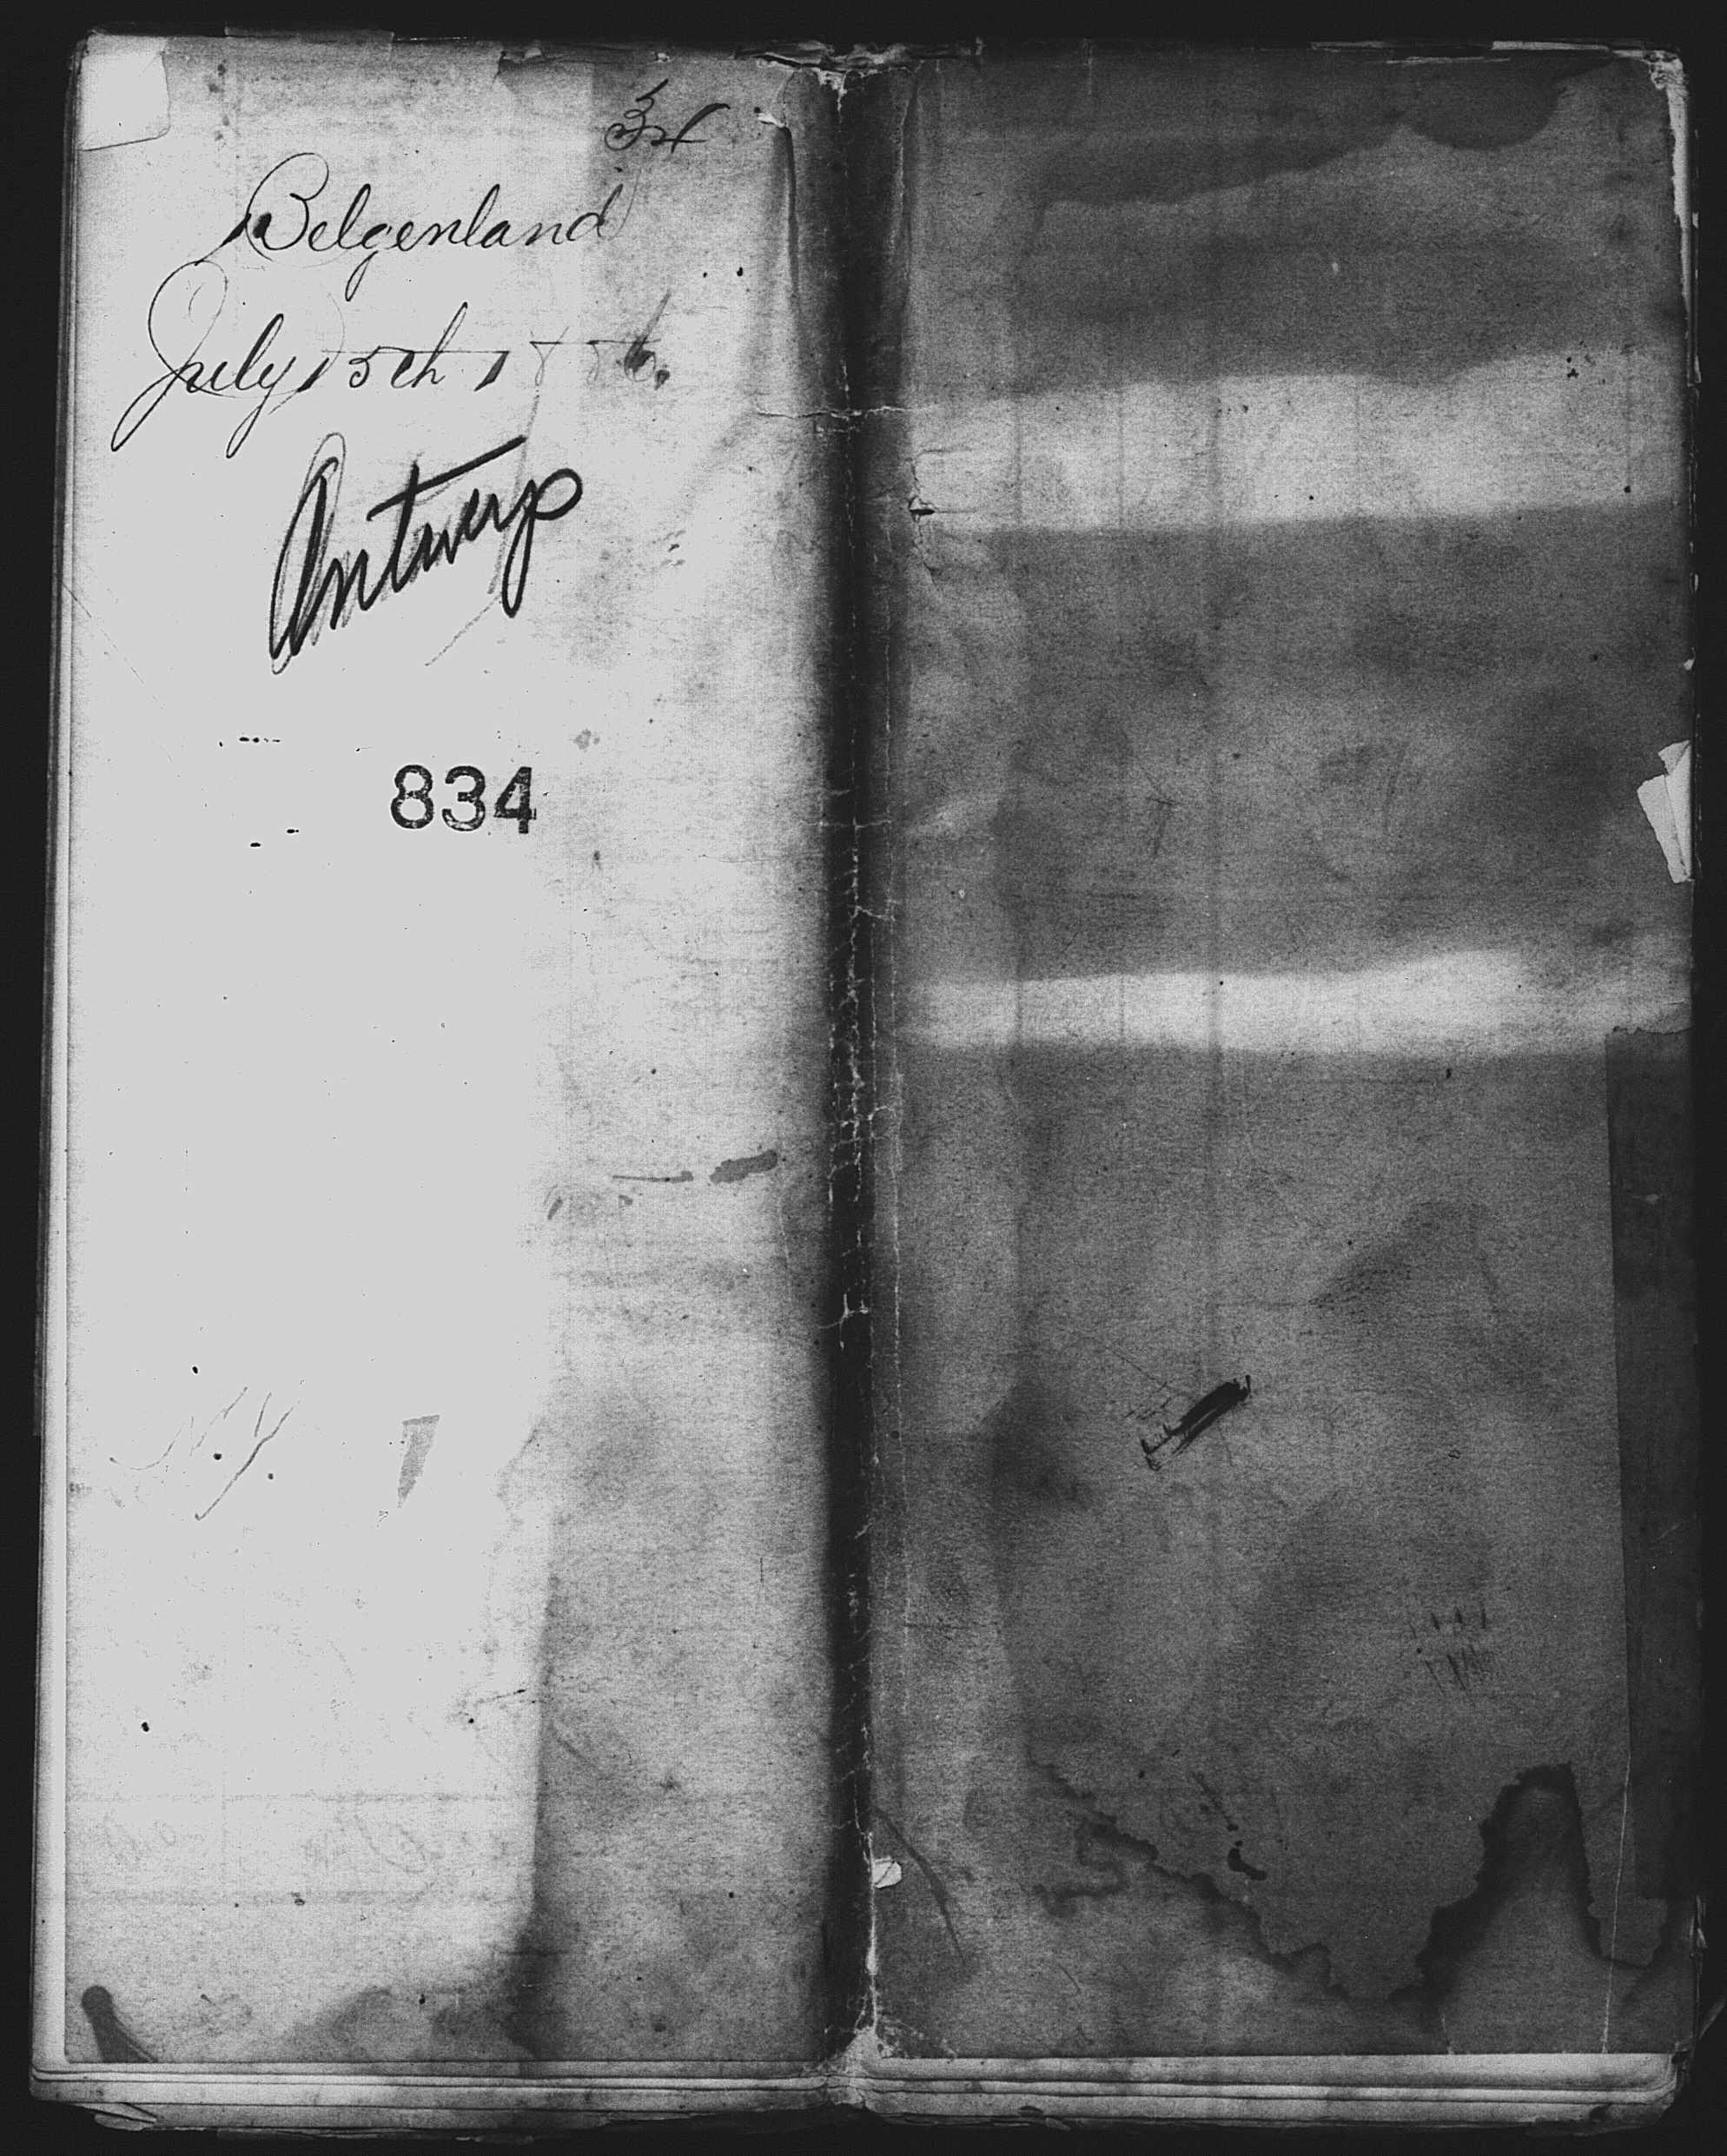 34
Belgenland
July 15th 1886.
Antwerp
834
N.Y.